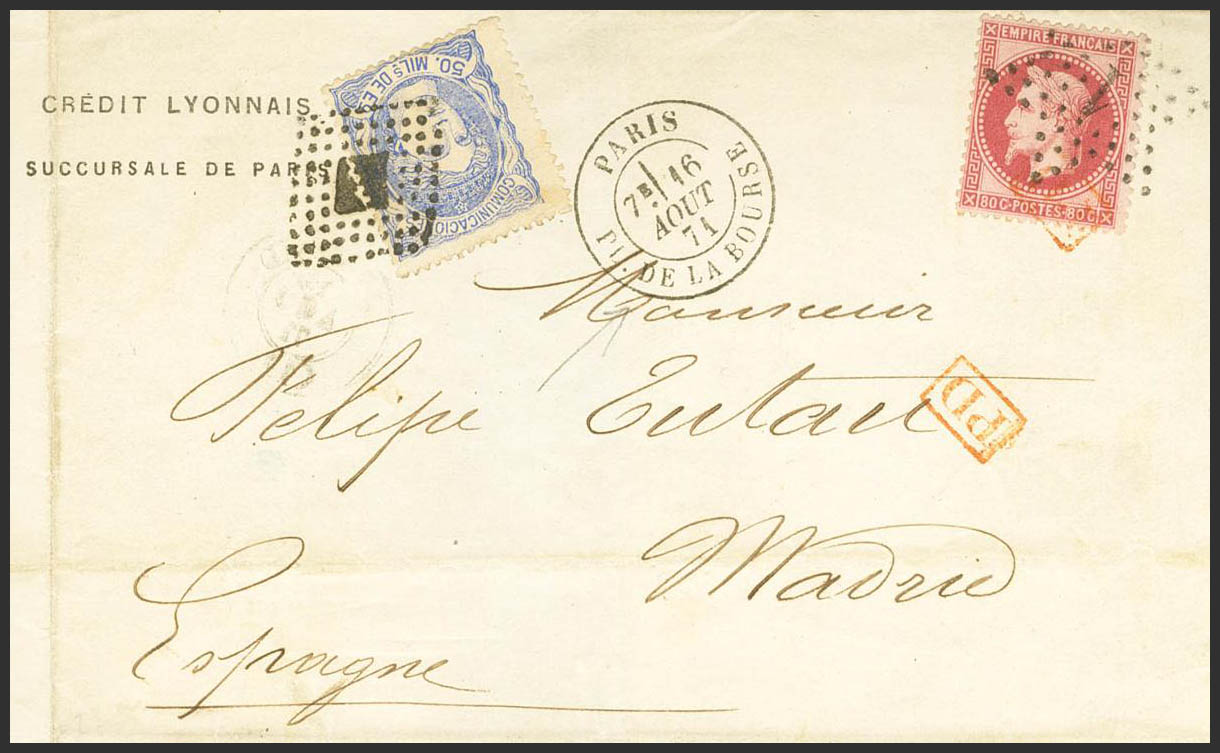 CRÉDIT LYONNAIS
SUCCURSALE DE PARIS
50. MILS DE ES
COMUNICACIO
PARIS
7E 16
AOUT
71
Pl. DE LA BOURSE
EMPIRE FRANÇAIS
1
80 C · POSTES · 80 C
Monsieur
Felipe
PD
Madrid
Espagne